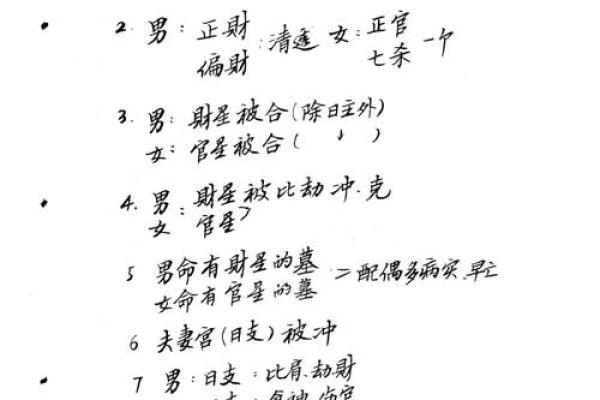 2. 男：正財 清逢 女：正官 一个
偏財 七杀
3. 男：財星被合(除日主外)
女：官星被合( ↓ )
4. 男：財星被比劫冲.克
女 官星
5 男命有財星的墓 = 配偶多病灾.早亡
女命有官星的墓
6 夫妻宫(日支)被冲
7 男：日支：比肩.劫財